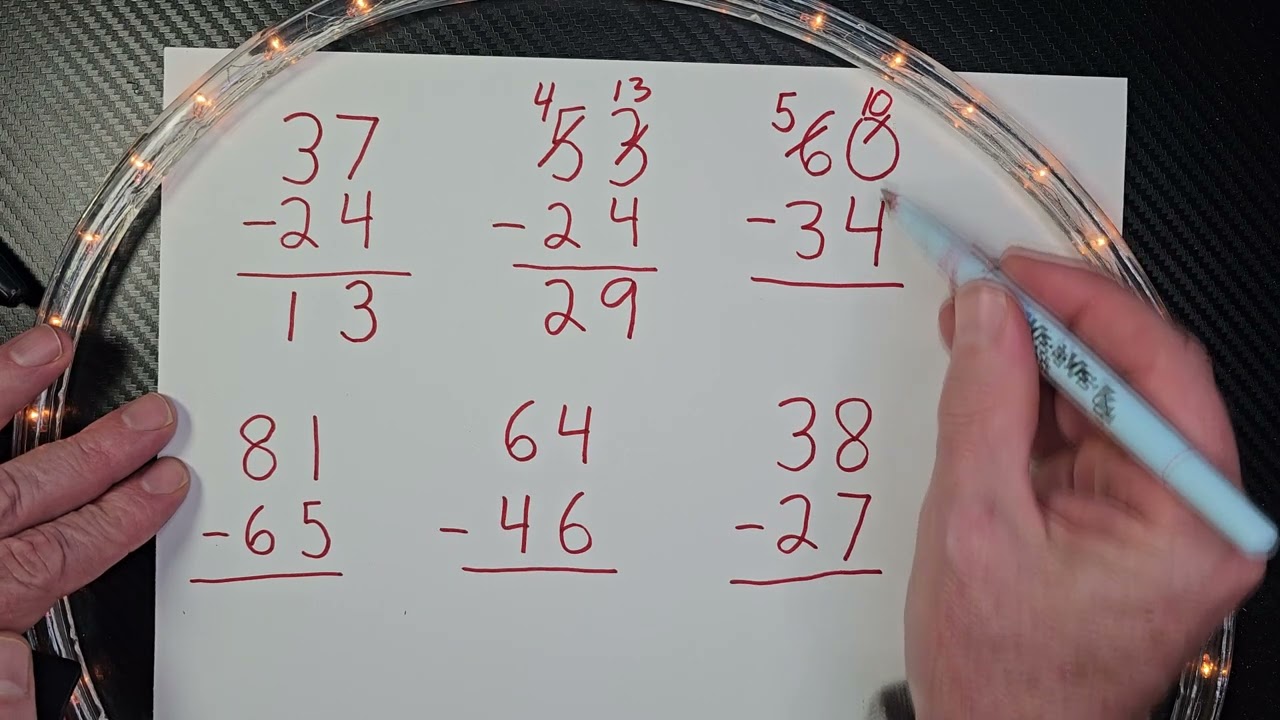 4 13 5 10
37 53 60
-24 -24 -34
13 29
81 64 38
-65 -46 -27